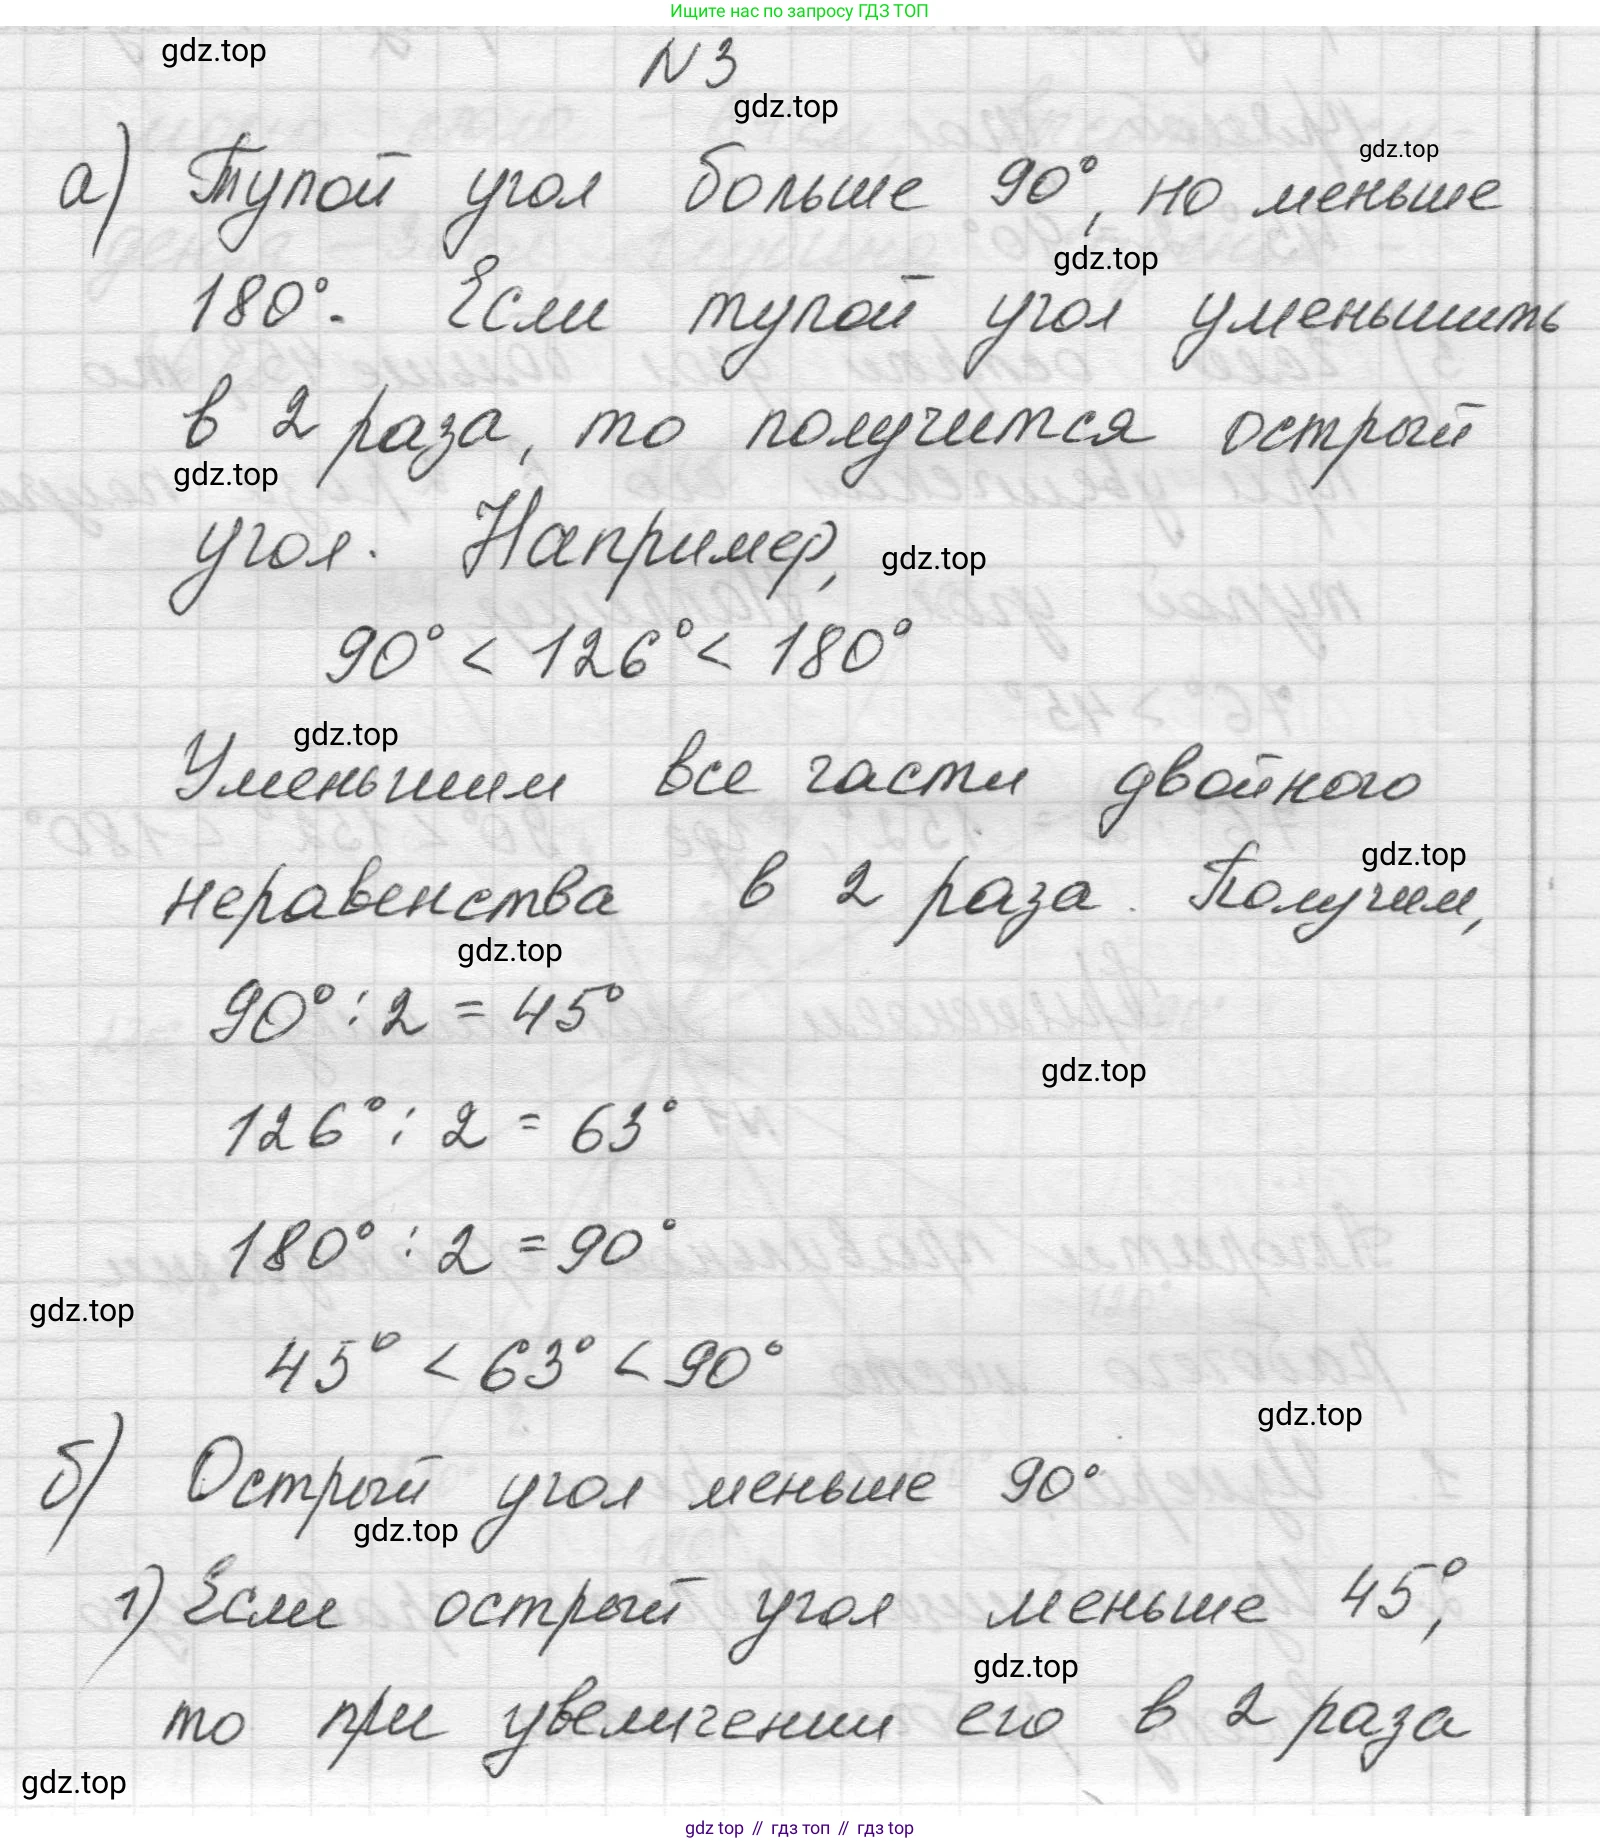 Ищите нас по запросу ГДЗ ТОП
gdz.top
N 3
gdz.top
gdz.top
а) Тупой угол больше 90°, но меньше
gdz.top
180°. Если тупой угол уменьшить
в 2 раза, то получится острый
gdz.top
угол. Например,
gdz.top
90° < 126° < 180°
gdz.top
Уменьшим все части двойного
gdz.top
неравенства в 2 раза. Получим,
gdz.top
90° : 2 = 45°
gdz.top
126° : 2 = 63°
180° : 2 = 90°
gdz.top
45° < 63° < 90°
gdz.top
б) Острый угол меньше 90°
gdz.top
1) Если острый угол меньше 45°,
gdz.top
то при увеличении его в 2 раза
gdz.top
gdz top // гдз топ // гдз top